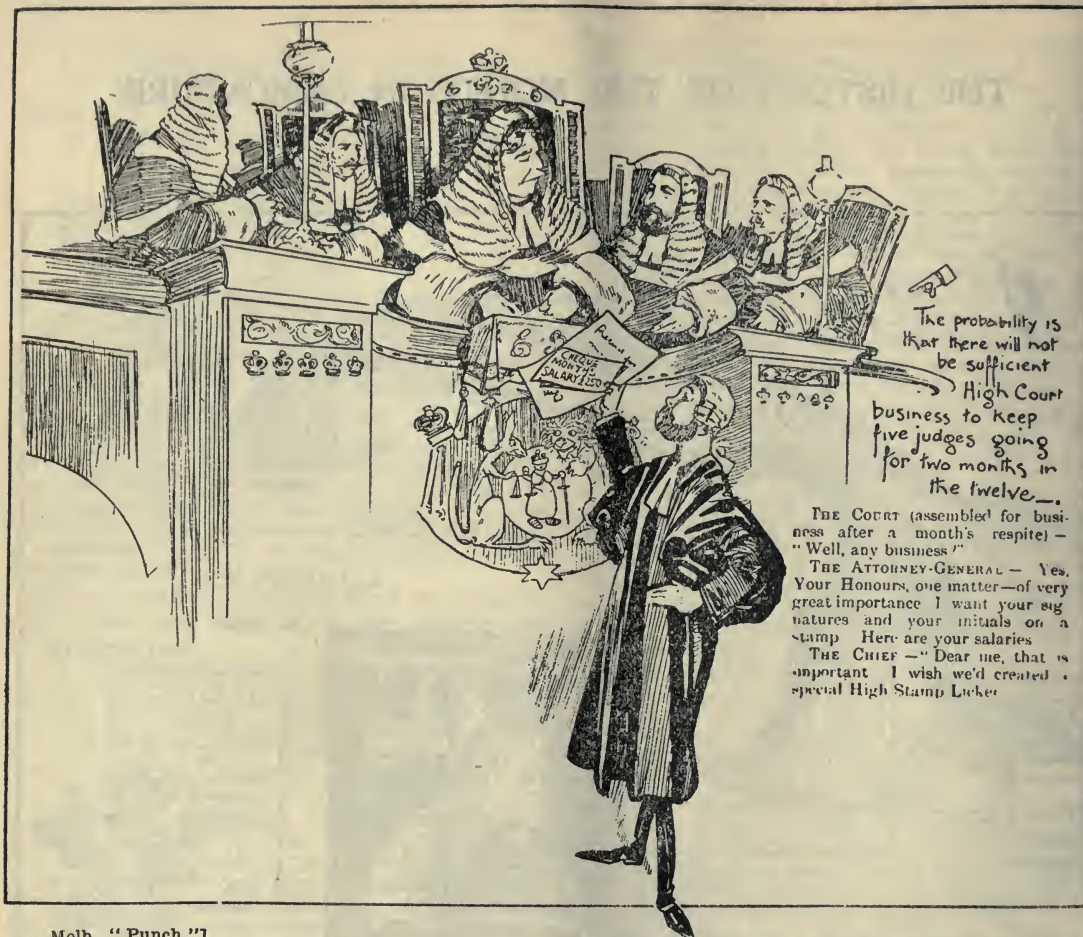 CHEQUE
MONTHS
SALARY £250
The probability is
that there will not
be sufficient
High Court
business to keep
five judges going
for two months in
the twelve—.
THE COURT (assembled for busi-
ness after a month's respite) —
"Well, any business?"
THE ATTORNEY-GENERAL — Yes,
Your Honours, one matter—of very
great importance I want your sig
natures and your initials on a
stamp Here are your salaries
THE CHIEF — "Dear me, that is
important I wish we'd created
special High Stamp Licker
Melb. "Punch."]